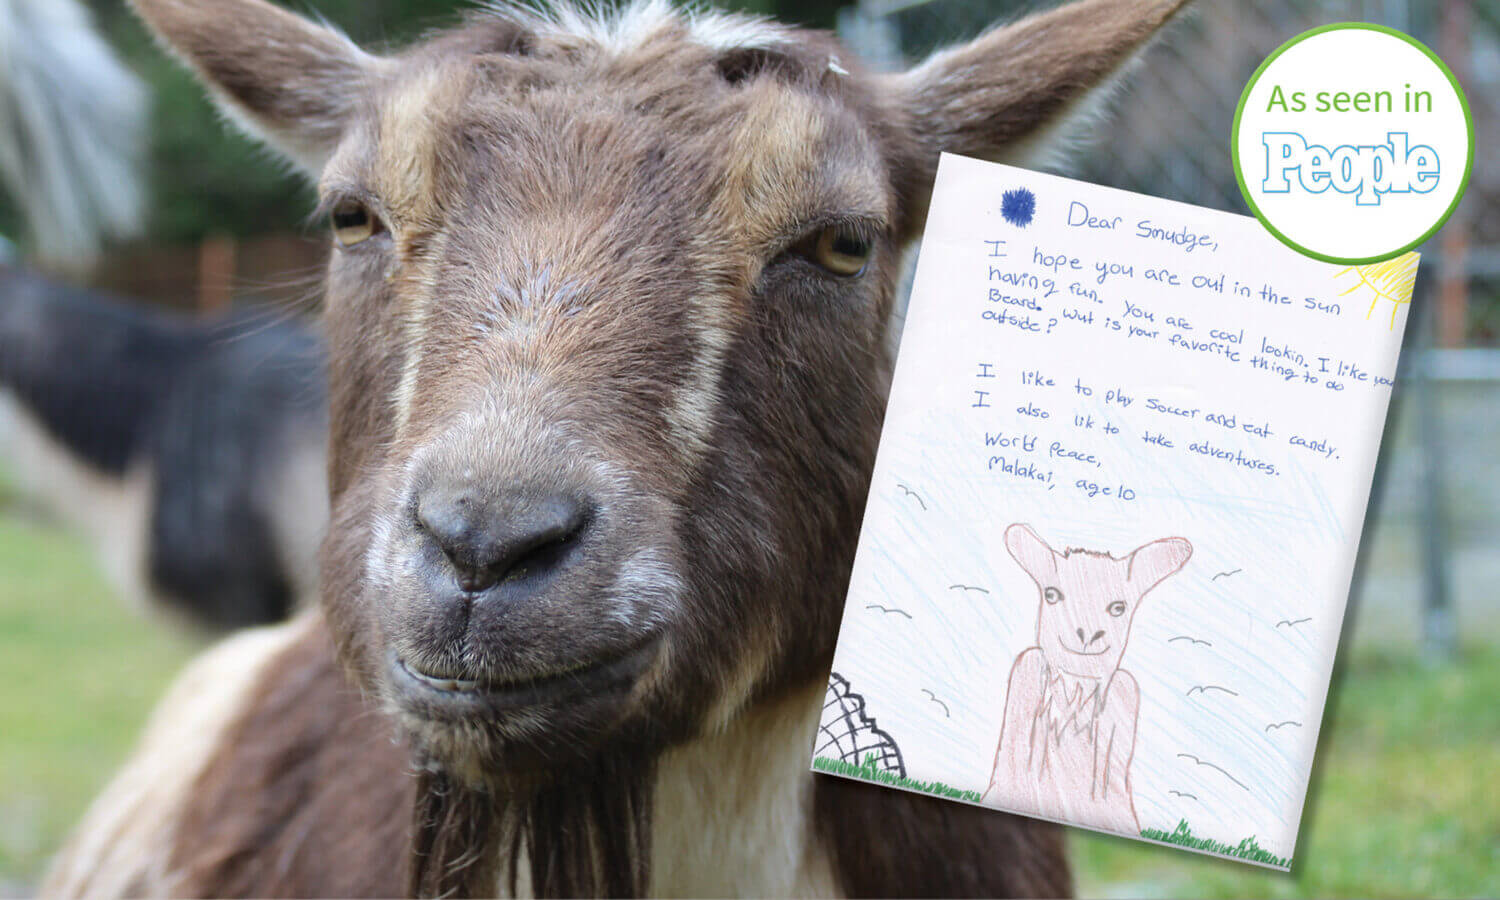 As seen in
People
Dear Smudge,
I hope you are out in the sun
having fun. You are cool lookin. I like you
Beard. Wut is your favorite thing to do
outside?
I like to play Soccer and eat candy.
I also lik to take adventures.
World Peace,
Malakai, age 10